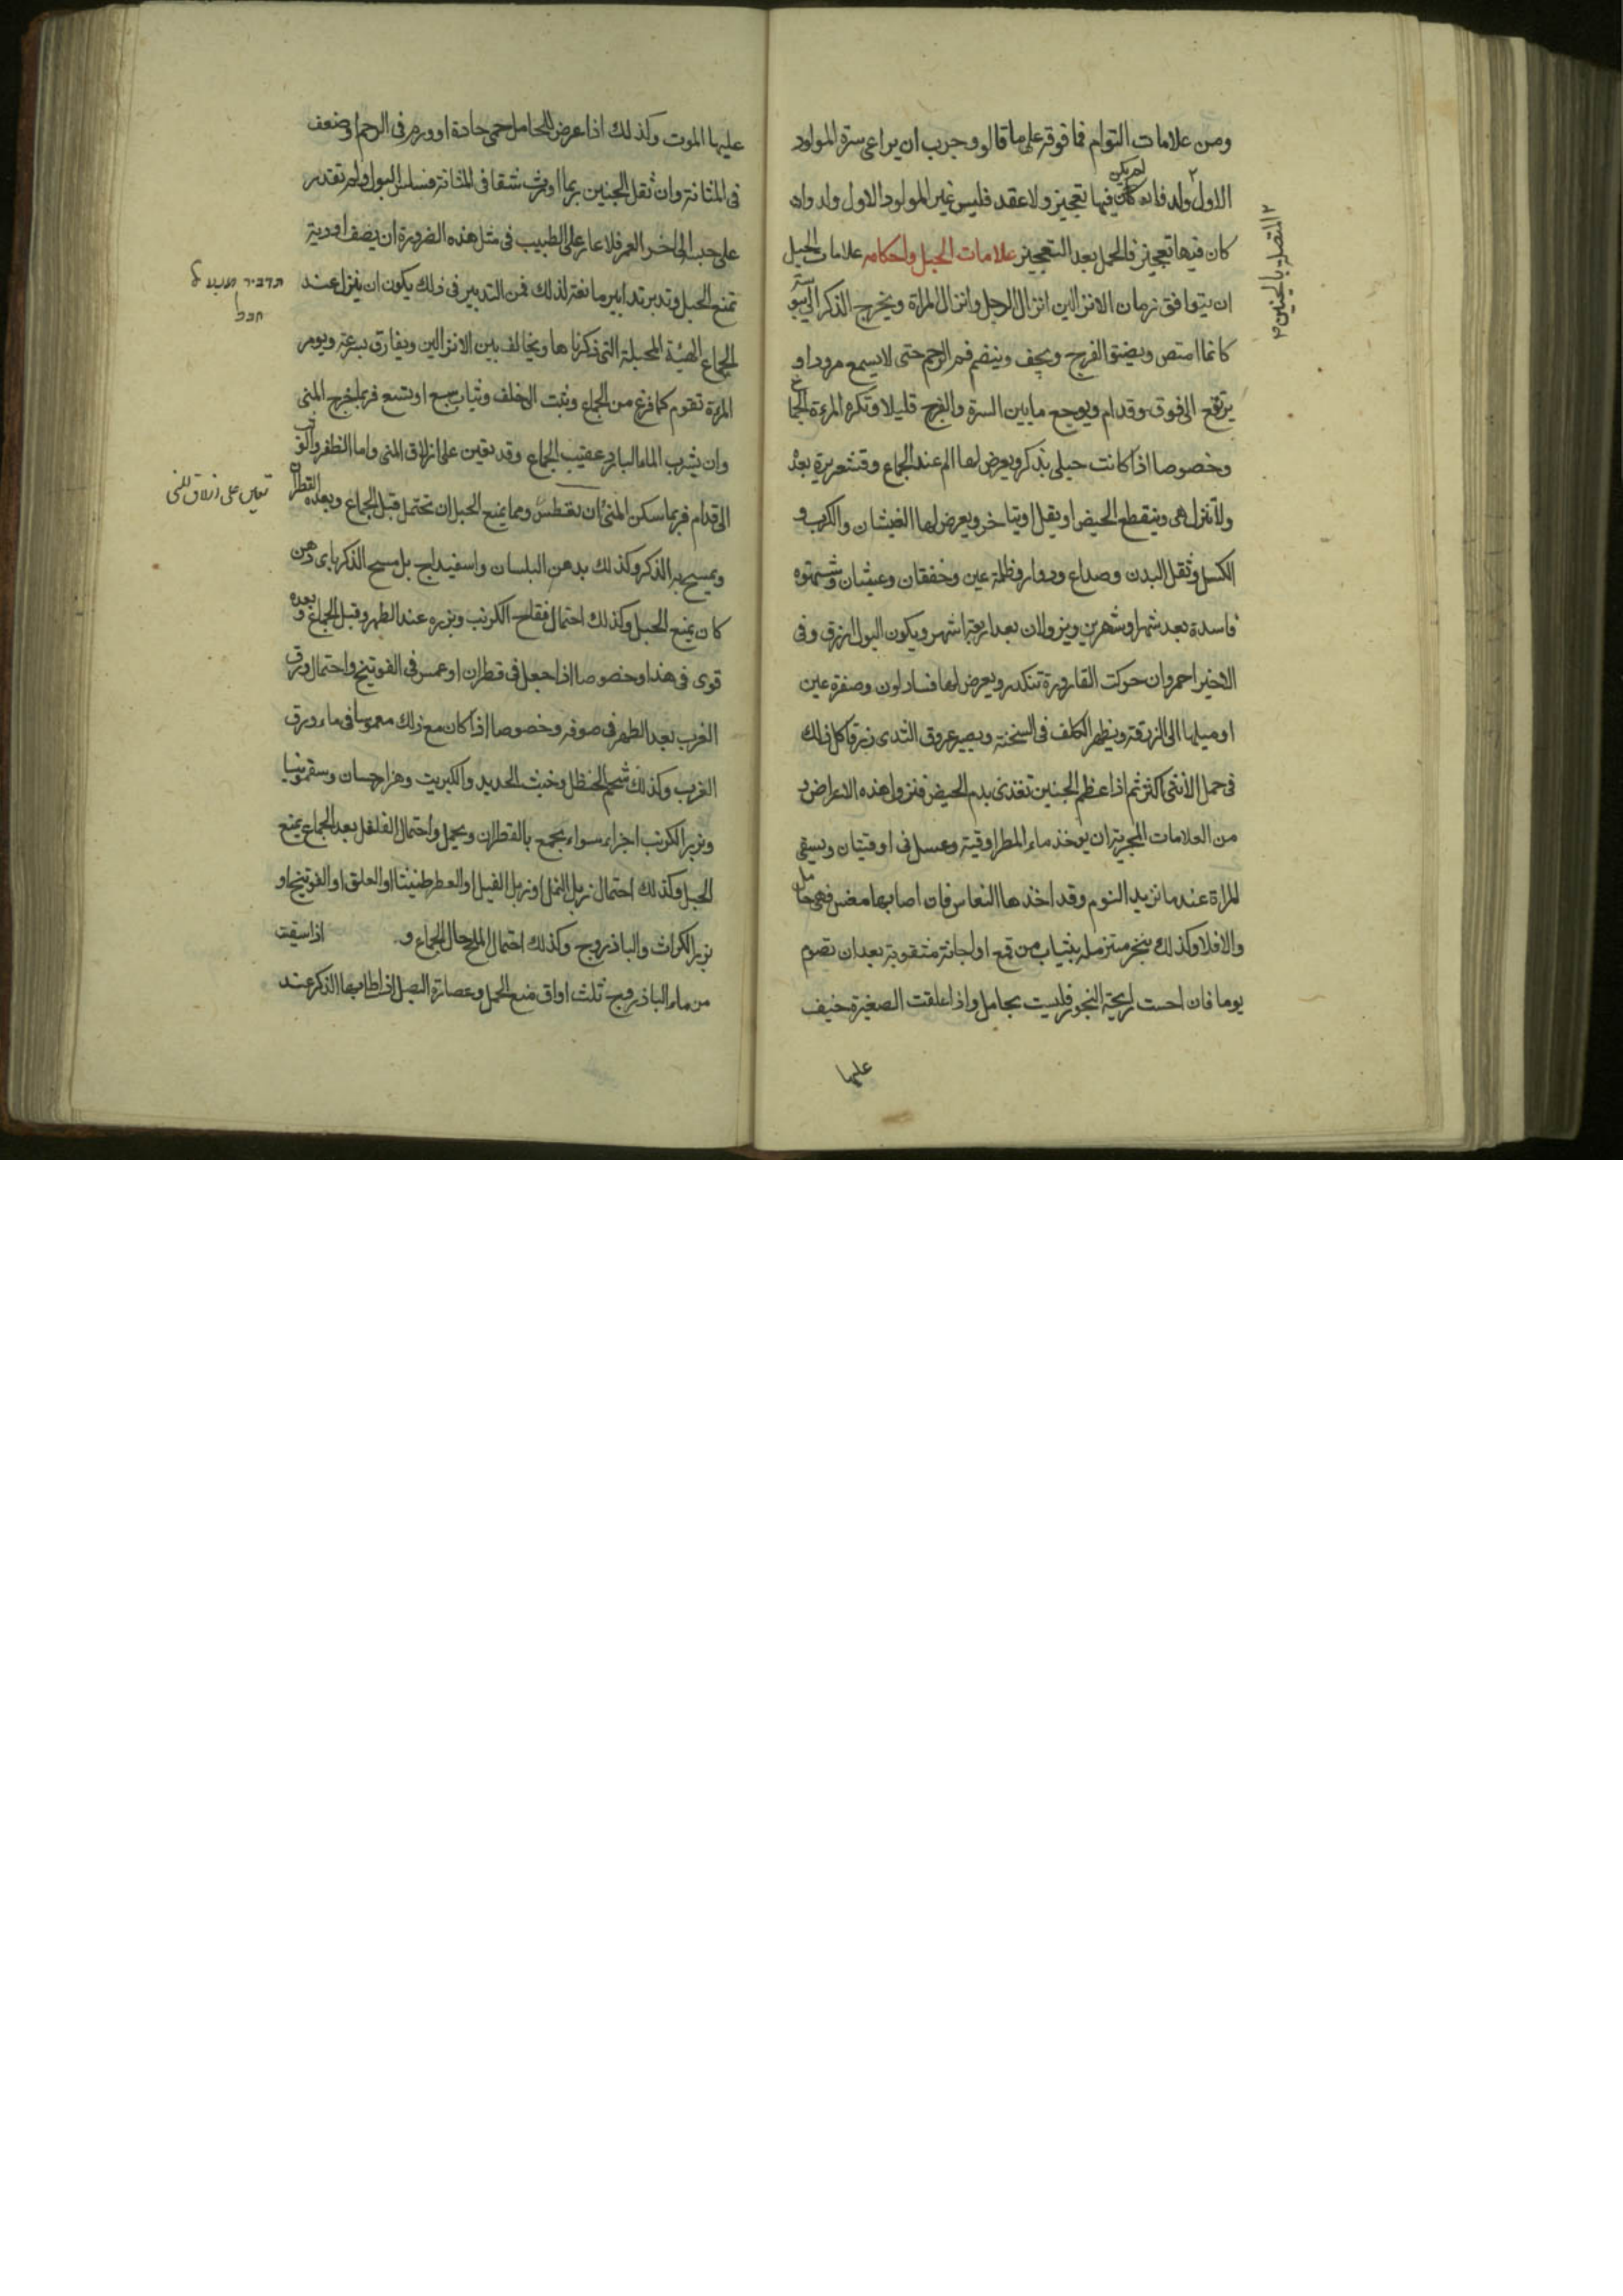 ومن علامات التوام فما فوقه على ما قالو وجرب ان يراعى سرة المولود
الاول ولد فان لم يكن فيها تعجيز ولا عقد فليس غير المولود الاول ولد وان
كان فيها تعجيز فالحمل بعد التعجيز علامات الحبل واحكامه علامات الحبل
ان يتوافق زمان الانزالين انزال الرجل وانزال المراة ويخرج الذكر الى
كانما امتص ويضيق الفرج ويجف وينضم فم الرحم حتى لا يسع مرود او
يرتفع الى فوق وقدام ويوجع ما بين السرة والفرج قليلا وتكره المرءة الجماع
وخصوصا اذا كانت حبلى بذكر ويعرض لها الم عند الجماع وقشعريرة بعد
ولا تنزل هى وينقطع الحيض او يقل او يتاخر ويعرض لها الغيثان والكرب و
الكسل وثقل البدن وصداع ودوار وظلمة عين وخفقان وغيثان وشهوة
فاسدة بعد شهر او شهرين ويزولان بعد اربعة اشهر ويكون البول ازرق وفى
الاخير احمر وان حركت القارورة تتكدر ويعرض لها فساد لون وصفرة عين
او ميلها الى الزرقة ويظهر الكلف فى السخنة ويصير عروق الثدى زرقا كل ذلك
فى حمل الانثى اكثر ثم اذا عظم الجنين تغذى بدم الحيض فتزول هذه الاعراض و
من العلامات المجربة ان يوخذ ماء المطر اوقية وعسل فى اوقيتان ويسقى
المراة عند ما تريد النوم وقد اخذها النعاس فان اصابها مغص فهى حامل
والا فلا وكذلك بخر متزمله بثياب من قمع او اجانة مثقوبة بعد ان تصوم
يوما فان احست رايحة البخور فليست بحامل واذا علقت الصغيرة خيف
عليها
المتصل بالجنين
عليها الموت وكذلك اذا عرض للحامل حمى حادة او ورم فى الرحم او ضعف
فى المثانة وان ثقل الجنين ربما اورث شقا فى المثانة فسلس البول ولم تقدر
على حبسه الى اخر العمر فلا عار على الطبيب فى مثل هذه الضرورة ان يصف ادوية
تمنع الحبل وتدبر تدابير مانعة لذلك فمن التدبير فى ذلك يكون ان ينزل عند
الجماع الهيئة المحبلة التى ذكرناها ويخالف بين الانزالين ويفارق بسرعة ويومر
المرءة تقوم كما فرغ من الجماع وتثب الى خلف وثبات سبع او تسع فربما خرج المنى
وان يشرب الماء البارد عقيب الجماع وقد يعين على ازلاق المنى واما الظفر والوثوب
الى قدام فربما سكن المنى ان تعطس ومما يمنع الحبل ان تحتمل قبل الجماع وبعده القطران
ويمسح به الذكر وكذلك بدهن البلسان واسفيداج بل مسح الذكر باى دهن
كان يمنع الحبل وكذلك احتمال فقاح الكرنب وبزره عند الطهر وقبل الجماع وبعده
قوى فى هذا وخصوصا اذا جعل فى قطران او غمس فى الفوتينج واحتمال ورق
الغرب بعد الطهر فى صوفه وخصوصا اذا كان مع ذلك مغموسا فى ماء ورق
الغرب وكذلك شحم الحنظل وخبث الحديد والكبريت وهزارجسان وسقمونيا
وبزر الكرنب اجزاء سواء يجمع بالقطران ويحمل واحتمال الفلفل بعد الجماع يمنع
الحبل وكذلك احتمال زبل النمل او زبل الفيل او العطرطنيثا او العلق او الفوتينج او
بزر الكراث والباذروج وكذلك احتمال الملح حال الجماع و اذا سقيت
من ماء الباذروج ثلث اواق منع الحمل وعصارة البصل اذا طلى بها الذكر عند
תדביר
חבל
تعين على ازلاق المنى